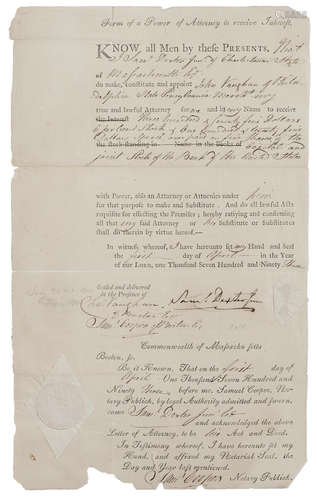 Form of a Power of Attorney to receive Interest.
KNOW all Men by these PRESENTS, That
I Saml Dexter junr of Charlestown State
of Massachusetts
do make, constitute and appoint John Vaughan of
State Pennsylvania my
true and lawful Attorney for me and in my Name to receive
the Interest
Dollars
the stock standing in Name in the Books of
joint Stock of the Bank of the United States
with Power, also an Attorney or Attorneys under him
for that purpose to make and Substitute. And do all lawful Acts
requisite for effecting the Premises; hereby ratifying and confirming
all that my said Attorney or his Substitute or Substitutes
shall do therein by virtue hereof.
In witness whereof, I have hereunto set my Hand and Seal
the first day of April in the Year
of our LORD, one Thousand Seven Hundred and Ninety Three
Sealed and delivered
in the Presence of
Cha Vaughan Saml Dexter Junr
Saml Cooper
Commonwealth of Massachusetts
Boston, ss.
Be it Known, That on the first day of
April One Thousand Seven Hundred and
Ninety Three before me, Samuel Cooper, No-
tary Publick, by legal Authority admitted and sworn,
came Saml Dexter junr
and acknowledged the above
Letter of Attorney, to be his Act and Deed.
In Testimony whereof, I have hereunto set my
Hand, and affixed my Notarial Seal, the
Day and Year last mentioned.
Saml Cooper Notary Publick.